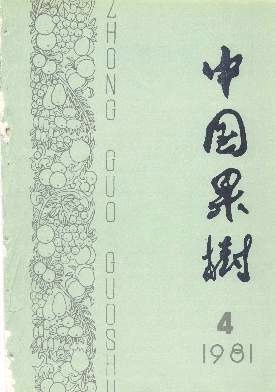 ZHONG GUO GUOSHU
中国果樹
4
1981